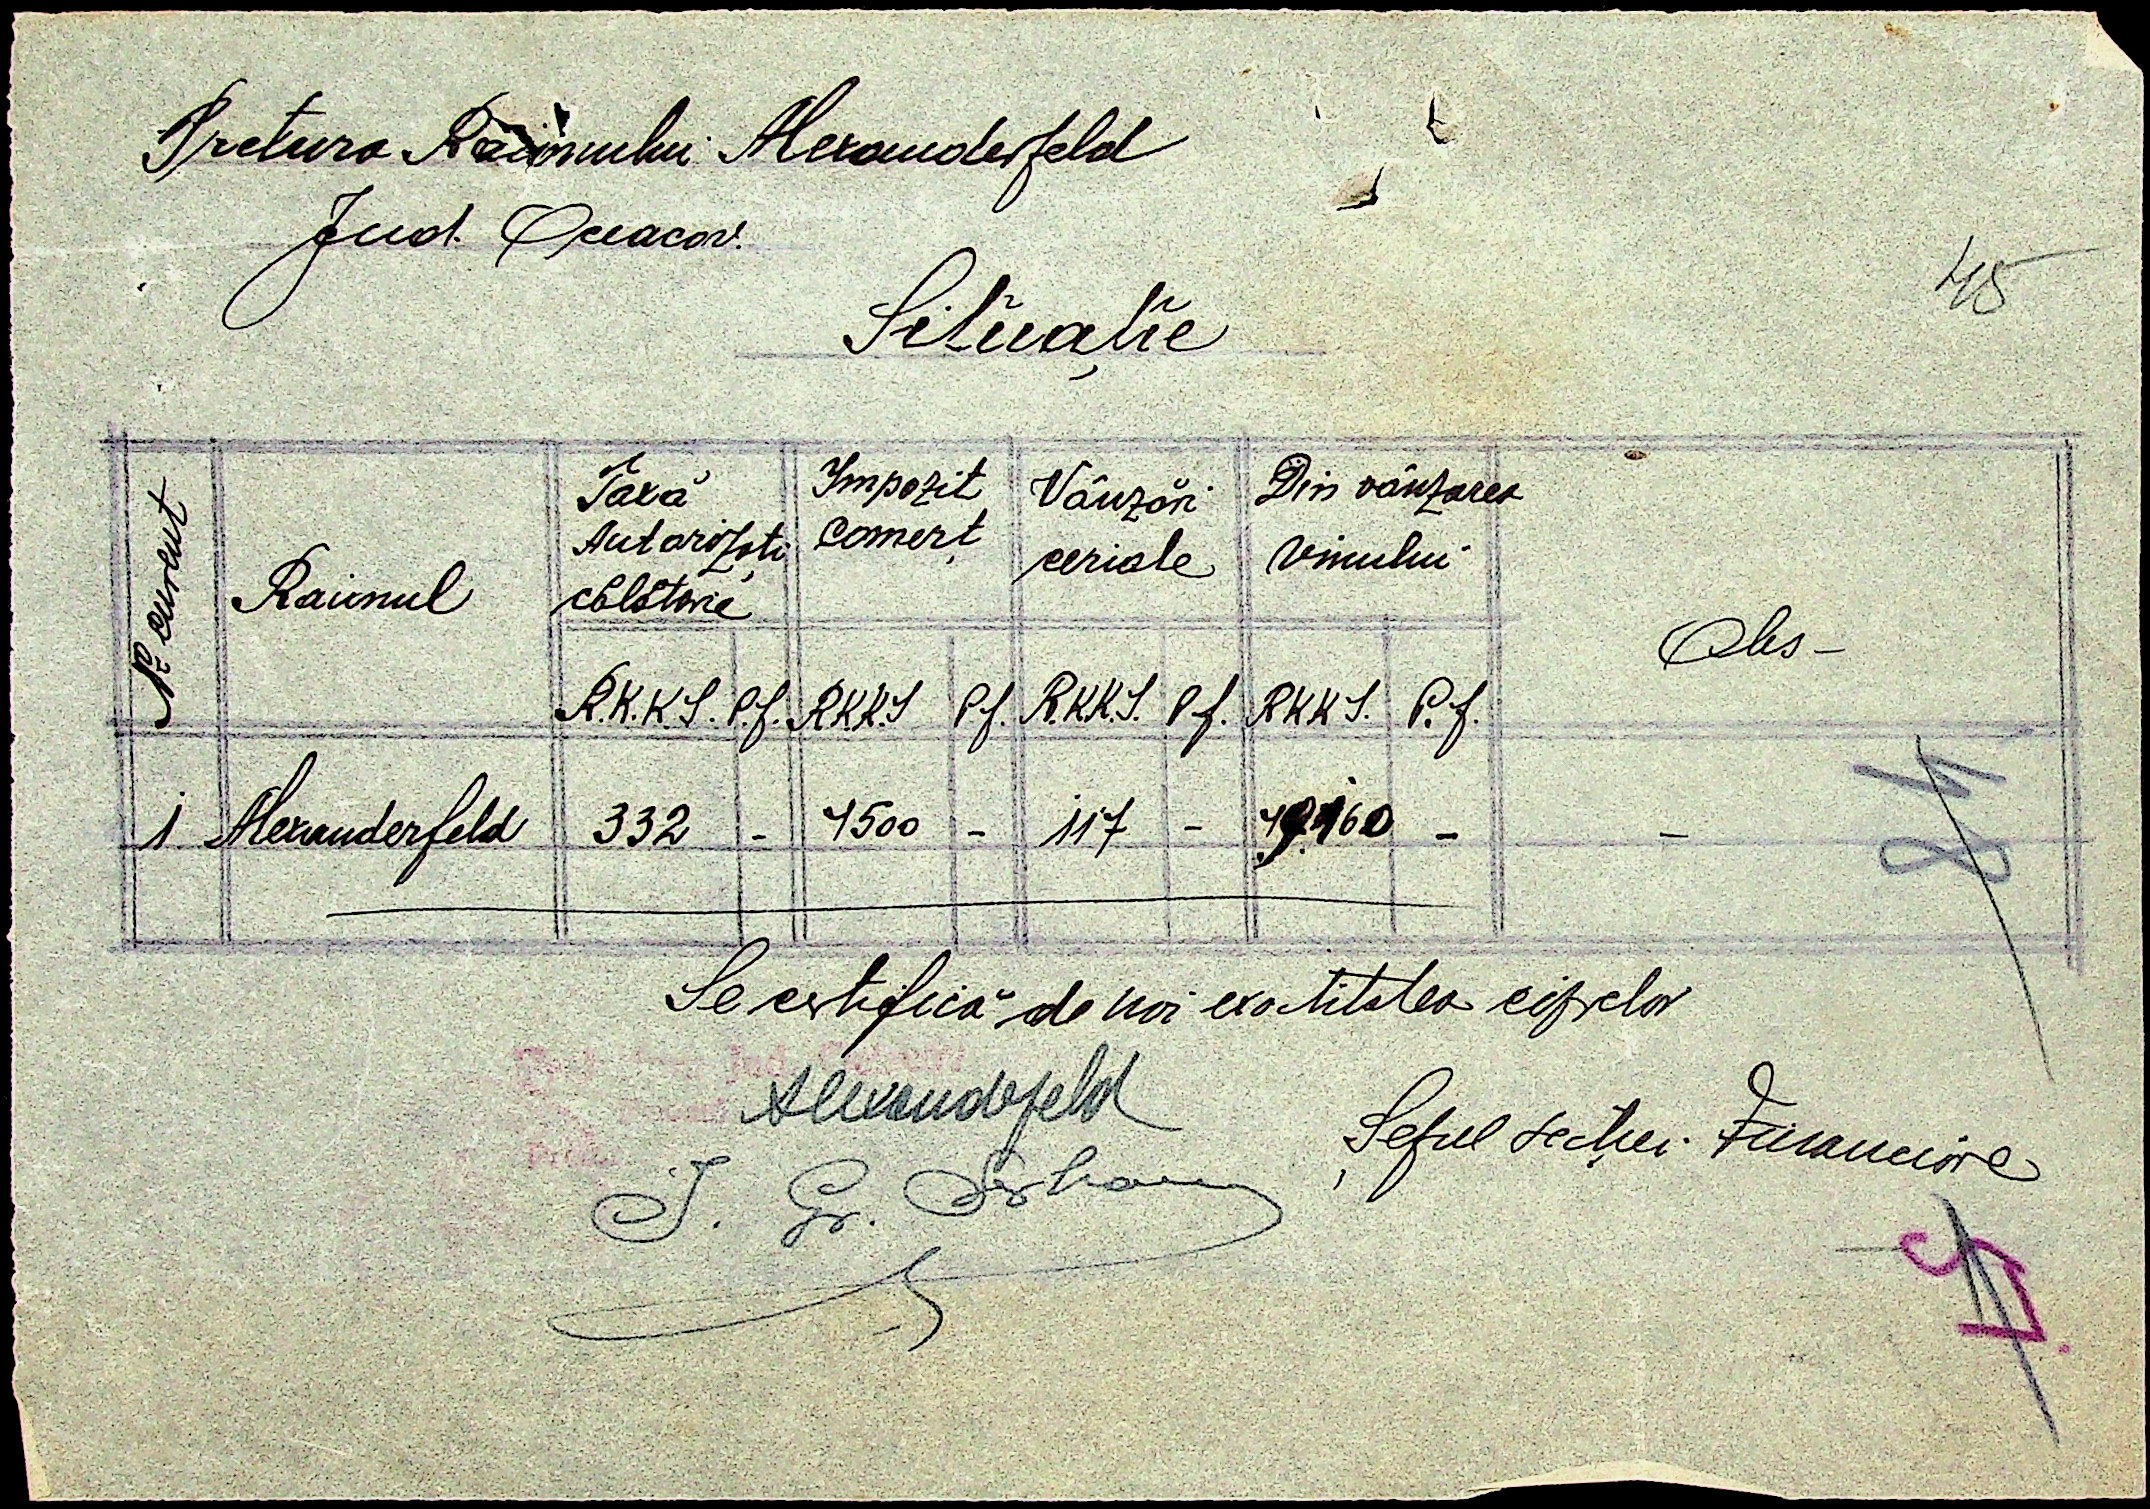 Pretura Raionului Alexanderfeld
Jud. Oceacov.
45
Situație
Nr. curent
Raionul
Taxă Autorizați călătorie
Impozit Comerț
Vânzări ceriale
Din vânzarea vinului
Obs –
R.K.K.S. P.f. R.K.K.S P.f. R.K.K.S. P.f. R.K.K.S. P.f.
1 Alexanderfeld 332 - 1500 - 117 - - -
84
Se certifică de noi exactitatea cifrelor
Alexanderfeld
Șeful secției Financiare